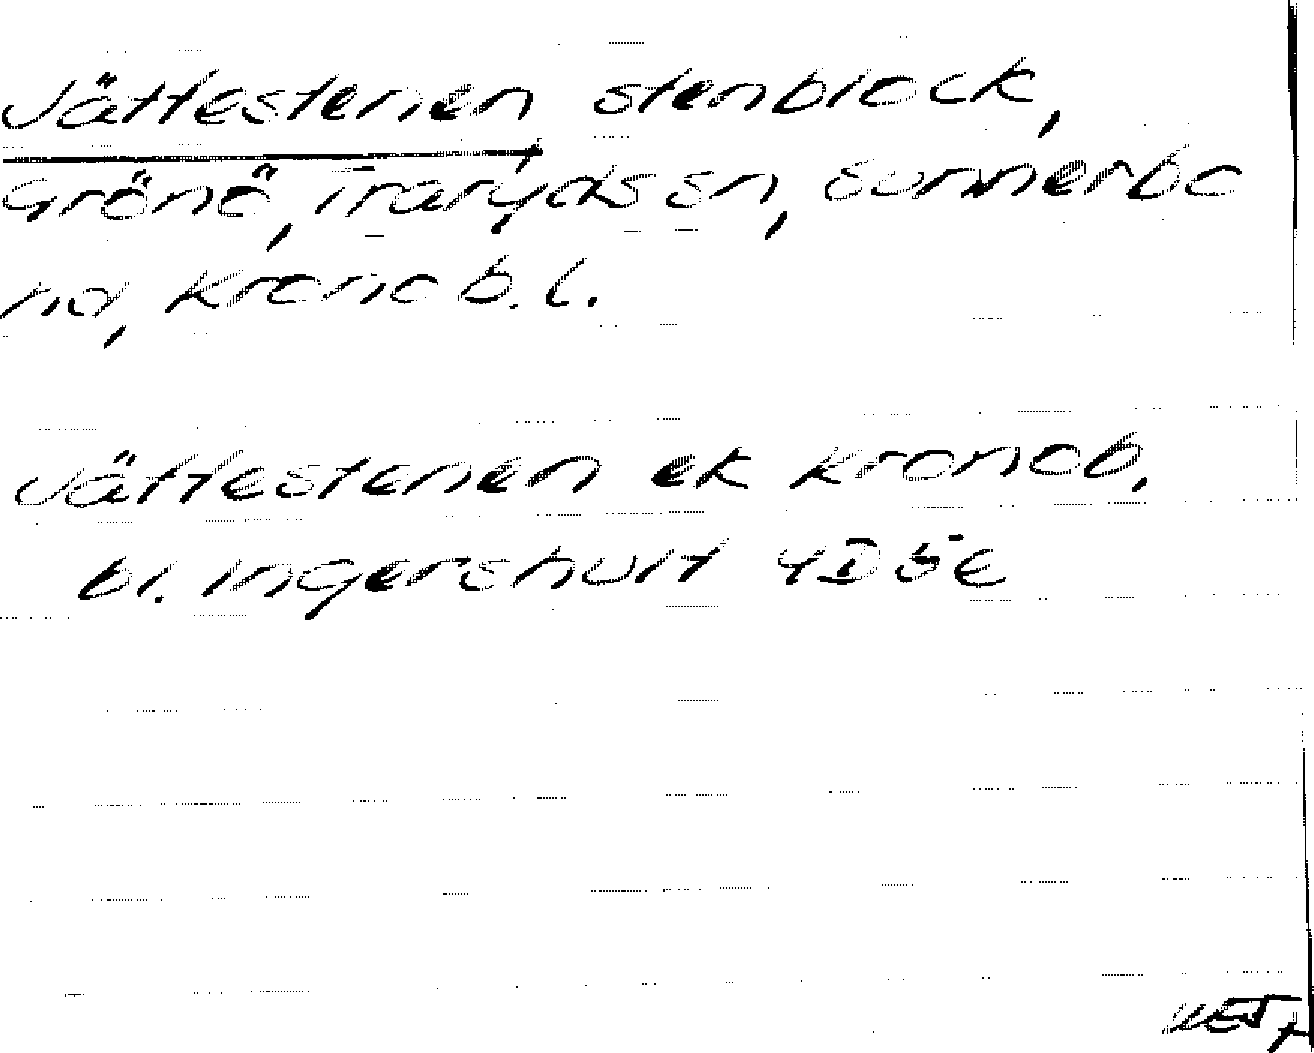 Jättestenen stenblock,
Grönö, Traryds sn, Sunnerbo
hd, Kronob. l.
Jättestenen ek Kronob.
bl. Ingershult 4D5e